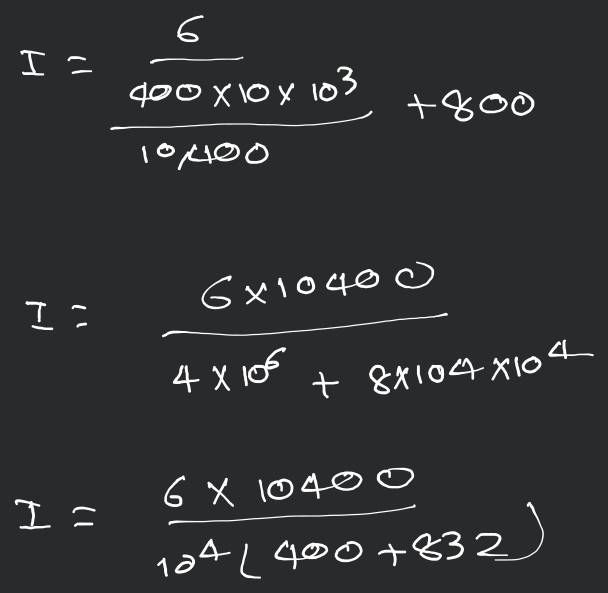 I = 6
400 × 10 × 10³ + 800
10,400
I = 6×10400
4 × 10⁶ + 8×104×10⁴
I = 6 × 10400
10⁴ ( 400 + 832 )